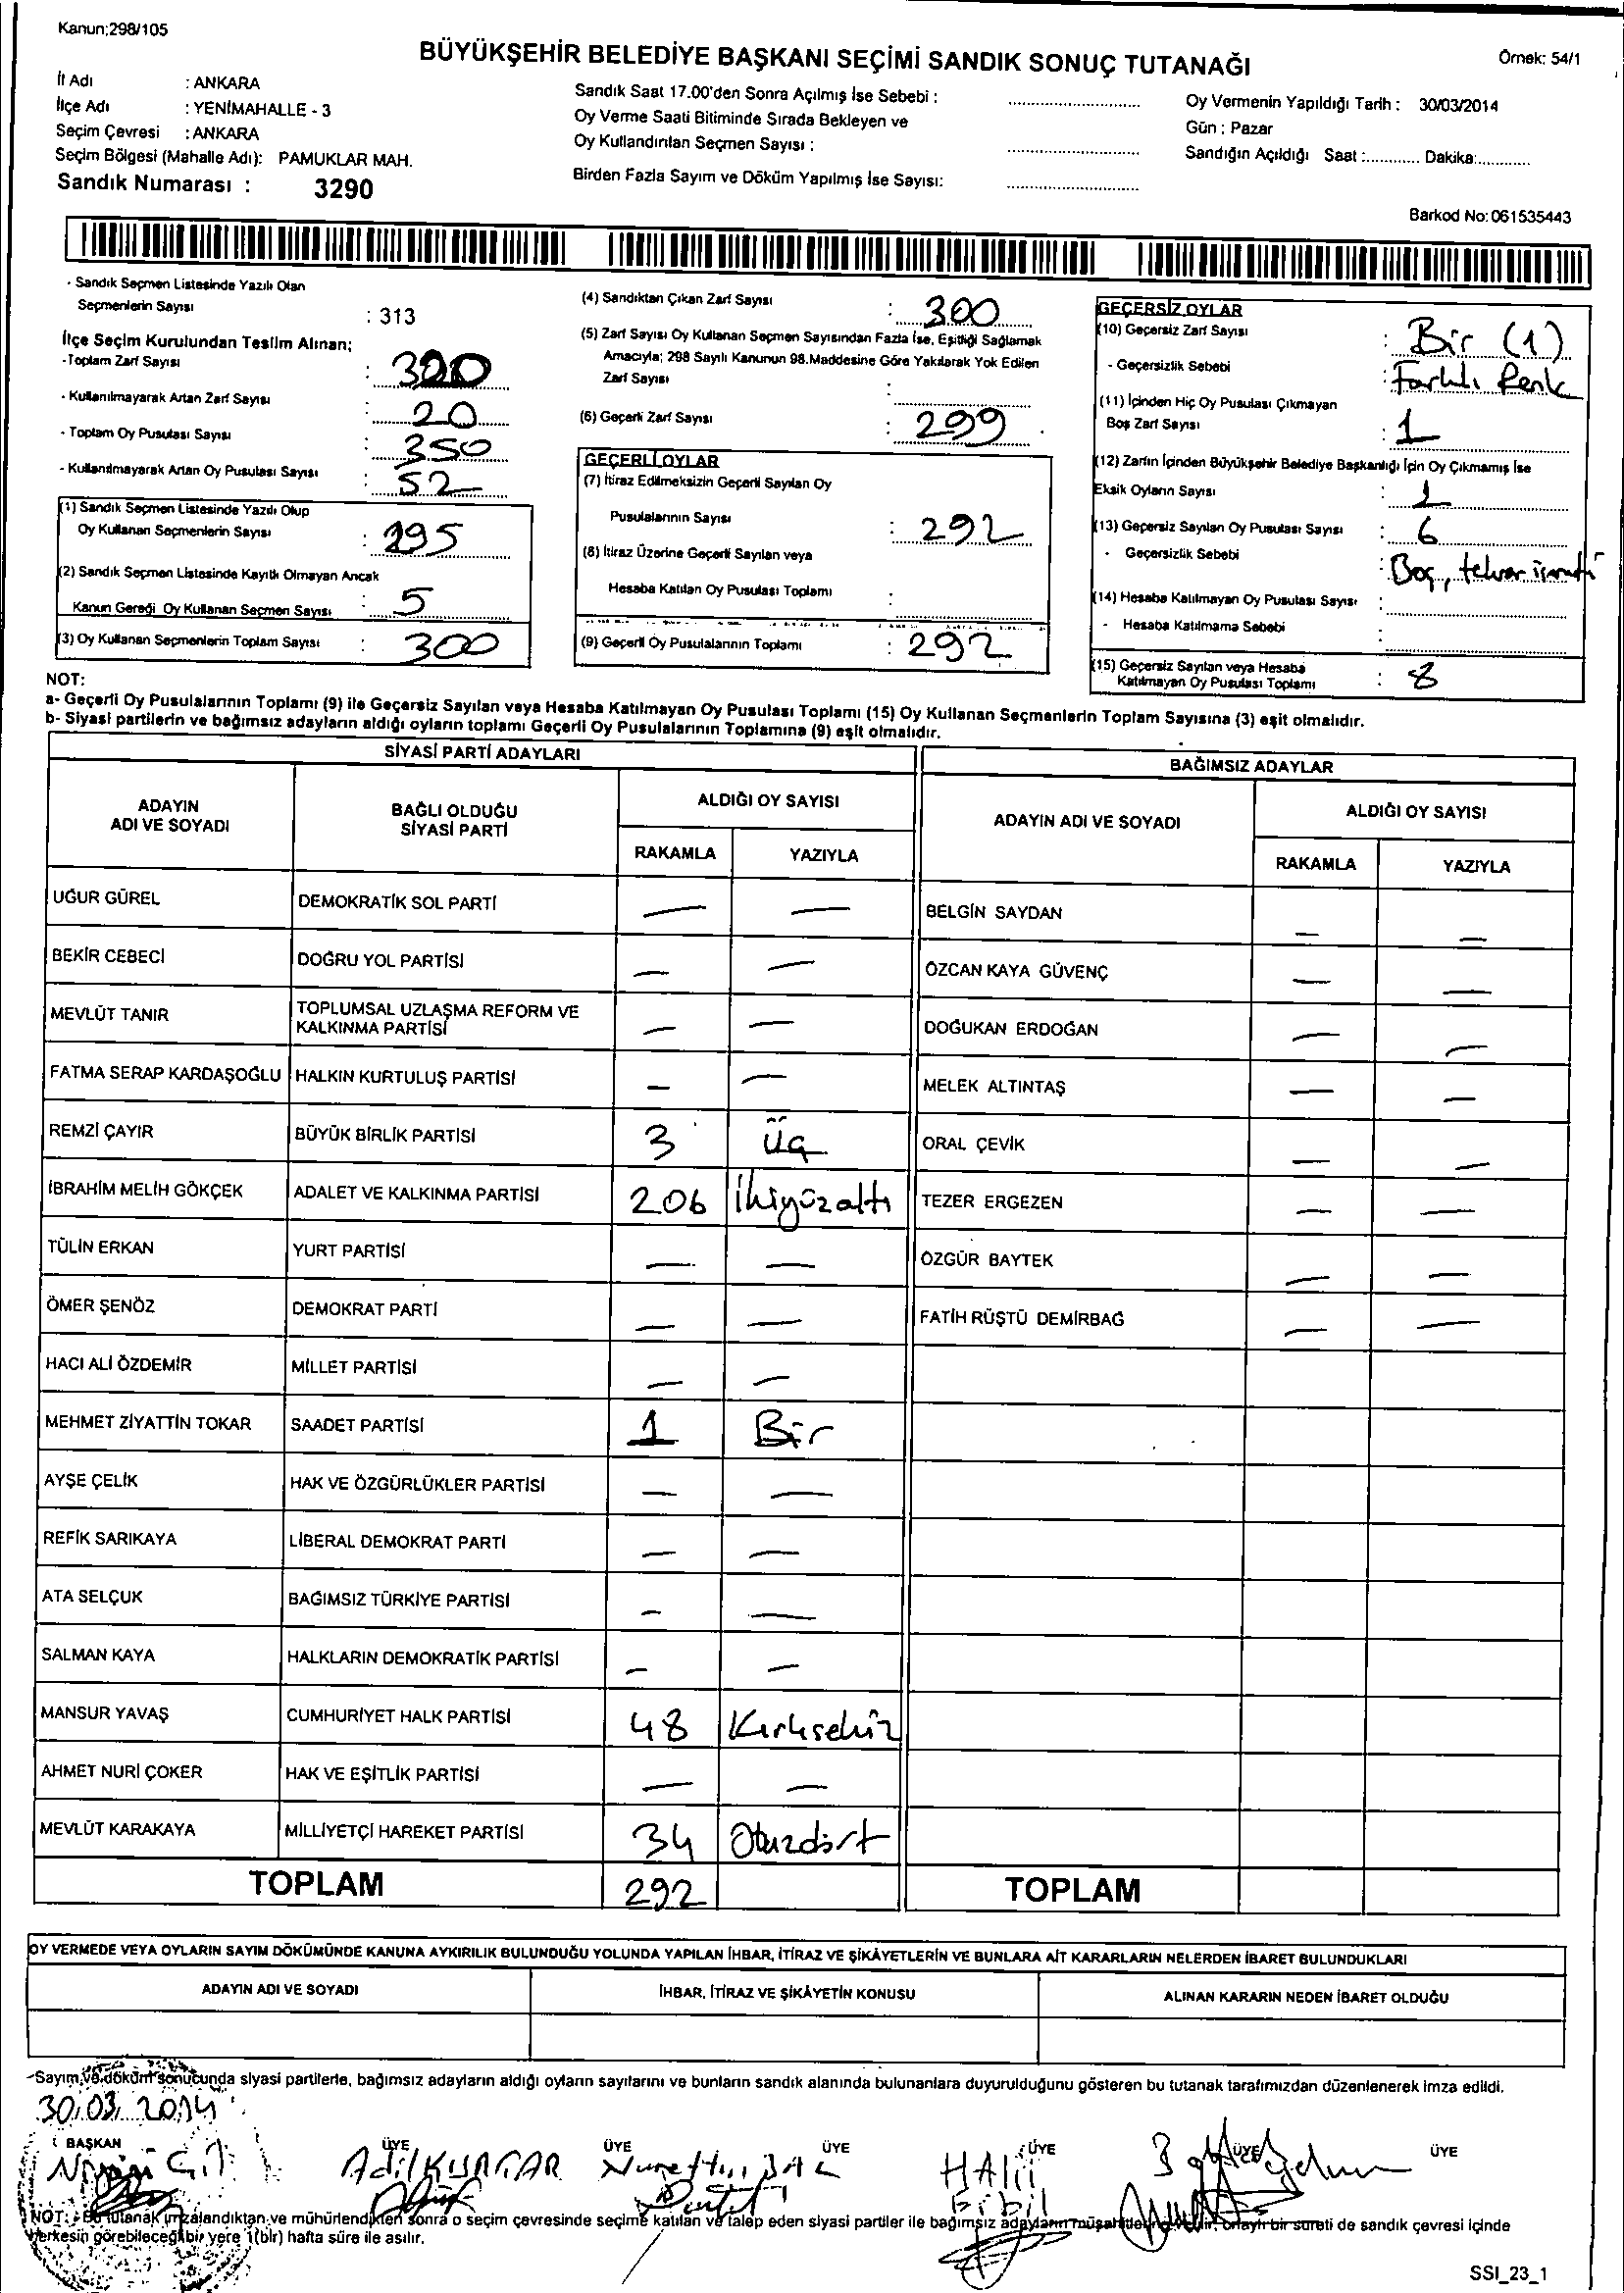 Kanun;298/105
BÜYÜKŞEHİR BELEDİYE BAŞKANI SEÇİMİ SANDIK SONUÇ TUTANAĞI
Örnek: 54/1
İl Adı : ANKARA
İlçe Adı : YENİMAHALLE - 3
Seçim Çevresi : ANKARA
Seçim Bölgesi (Mahalle Adı): PAMUKLAR MAH.
Sandık Numarası : 3290
Sandık Saat 17.00'den Sonra Açılmış İse Sebebi :
Oy Verme Saati Bitiminde Sırada Bekleyen ve
Oy Kullandırılan Seçmen Sayısı :
Birden Fazla Sayım ve Döküm Yapılmış İse Sayısı:
Oy Vermenin Yapıldığı Tarih : 30/03/2014
Gün : Pazar
Sandığın Açıldığı Saat :............ Dakika:............
Barkod No:061535443
- Sandık Seçmen Listesinde Yazılı Olan
Seçmenlerin Sayısı : 313
İlçe Seçim Kurulundan Teslim Alınan;
-Toplam Zarf Sayısı : 320
- Kullanılmayarak Artan Zarf Sayısı : 20
- Toplam Oy Pusulası Sayısı : 350
- Kullanılmayarak Artan Oy Pusulası Sayısı : 52
(1) Sandık Seçmen Listesinde Yazılı Olup
Oy Kullanan Seçmenlerin Sayısı : 295
(2) Sandık Seçmen Listesinde Kayıtlı Olmayan Ancak
Kanun Gereği Oy Kullanan Seçmen Sayısı : 5
(3) Oy Kullanan Seçmenlerin Toplam Sayısı : 300
(4) Sandıktan Çıkan Zarf Sayısı : 300
(5) Zarf Sayısı Oy Kullanan Seçmen Sayısından Fazla İse, Eşitliği Sağlamak
Amacıyla; 298 Sayılı Kanunun 98.Maddesine Göre Yakılarak Yok Edilen
Zarf Sayısı :
(6) Geçerli Zarf Sayısı : 299
GEÇERLİ OYLAR
(7) İtiraz Edilmeksizin Geçerli Sayılan Oy
Pusulalarının Sayısı : 292
(8) İtiraz Üzerine Geçerli Sayılan veya
Hesaba Katılan Oy Pusulası Toplamı :
(9) Geçerli Oy Pusulalarının Toplamı : 292
GEÇERSİZ OYLAR
(10) Geçersiz Zarf Sayısı : Bir (1)
- Geçersizlik Sebebi : Farklı Renk
(11) İçinden Hiç Oy Pusulası Çıkmayan
Boş Zarf Sayısı : 1
(12) Zarfın İçinden Büyükşehir Belediye Başkanlığı İçin Oy Çıkmamış İse
Eksik Oyların Sayısı : 1
(13) Geçersiz Sayılan Oy Pusulası Sayısı : 6
- Geçersizlik Sebebi : Boş,
(14) Hesaba Katılmayan Oy Pusulası Sayısı :
- Hesaba Katılmama Sebebi :
(15) Geçersiz Sayılan veya Hesaba
Katılmayan Oy Pusulası Toplamı : 8
NOT:
a- Geçerli Oy Pusulalarının Toplamı (9) ile Geçersiz Sayılan veya Hesaba Katılmayan Oy Pusulası Toplamı (15) Oy Kullanan Seçmenlerin Toplam Sayısına (3) eşit olmalıdır.
b- Siyasi partilerin ve bağımsız adayların aldığı oyların toplamı Geçerli Oy Pusulalarının Toplamına (9) eşit olmalıdır.
SİYASİ PARTİ ADAYLARI
BAĞIMSIZ ADAYLAR
ADAYIN ADI VE SOYADI
BAĞLI OLDUĞU SİYASİ PARTİ
ALDIĞI OY SAYISI
RAKAMLA YAZIYLA
ADAYIN ADI VE SOYADI
ALDIĞI OY SAYISI
RAKAMLA YAZIYLA
UĞUR GÜREL DEMOKRATİK SOL PARTİ — — BELGİN SAYDAN — —
BEKİR CEBECİ DOĞRU YOL PARTİSİ — — ÖZCAN KAYA GÜVENÇ — —
MEVLÜT TANIR TOPLUMSAL UZLAŞMA REFORM VE KALKINMA PARTİSİ — — DOĞUKAN ERDOĞAN — —
FATMA SERAP KARDAŞOĞLU HALKIN KURTULUŞ PARTİSİ — — MELEK ALTINTAŞ — —
REMZİ ÇAYIR BÜYÜK BİRLİK PARTİSİ 3 Üç ORAL ÇEVİK — —
İBRAHİM MELİH GÖKÇEK ADALET VE KALKINMA PARTİSİ 206 İkiyüzaltı TEZER ERGEZEN — —
TÜLİN ERKAN YURT PARTİSİ — — ÖZGÜR BAYTEK — —
ÖMER ŞENÖZ DEMOKRAT PARTİ — — FATİH RÜŞTÜ DEMİRBAĞ — —
HACI ALİ ÖZDEMİR MİLLET PARTİSİ — —
MEHMET ZİYATTİN TOKAR SAADET PARTİSİ 1 Bir
AYŞE ÇELİK HAK VE ÖZGÜRLÜKLER PARTİSİ — —
REFİK SARIKAYA LİBERAL DEMOKRAT PARTİ — —
ATA SELÇUK BAĞIMSIZ TÜRKİYE PARTİSİ — —
SALMAN KAYA HALKLARIN DEMOKRATİK PARTİSİ — —
MANSUR YAVAŞ CUMHURİYET HALK PARTİSİ 48 Kırksekiz
AHMET NURİ ÇOKER HAK VE EŞİTLİK PARTİSİ — —
MEVLÜT KARAKAYA MİLLİYETÇİ HAREKET PARTİSİ 34 Otuzdört
TOPLAM 292 TOPLAM
OY VERMEDE VEYA OYLARIN SAYIM DÖKÜMÜNDE KANUNA AYKIRILIK BULUNDUĞU YOLUNDA YAPILAN İHBAR, İTİRAZ VE ŞİKÂYETLERİN VE BUNLARA AİT KARARLARIN NELERDEN İBARET BULUNDUKLARI
ADAYIN ADI VE SOYADI İHBAR, İTİRAZ VE ŞİKÂYETİN KONUSU ALINAN KARARIN NEDEN İBARET OLDUĞU
-Sayım ve döküm sonucunda siyasi partilerle, bağımsız adayların aldığı oyların sayılarını ve bunların sandık alanında bulunanlara duyurulduğunu gösteren bu tutanak tarafımızdan düzenlenerek imza edildi.
30.03.2014
BAŞKAN ÜYE ÜYE ÜYE ÜYE ÜYE ÜYE
Adil Nurettin HALİL
NOT: Bu tutanak imzalandıktan ve mühürlendikten sonra o seçim çevresinde seçime katılan ve talep eden siyasi partiler ile bağımsız adayların onaylı bir sureti de sandık çevresi içinde
herkesin görebileceği bir yere 1(bir) hafta süre ile asılır.
SSI_23_1